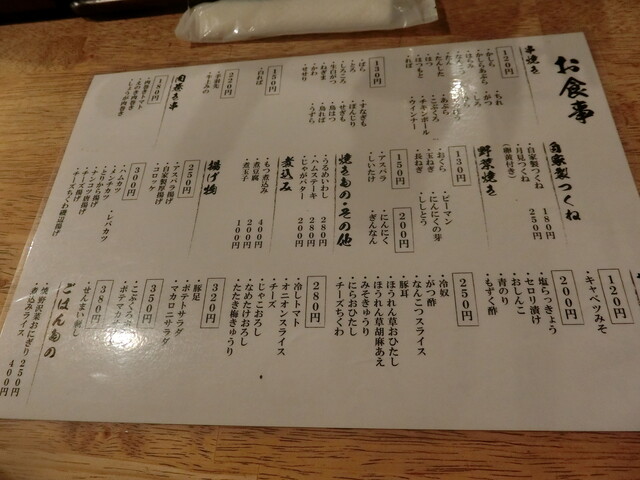 お食事
串焼き
120円
・かしら
・かしらあぶら
・たん
・たんした
・はつ
・はつもと
・ればー
・ちれ
・がつ
・あぶら
・こぶくろ
・チキンボール
・ウィンナー
130円
・ばら
・とろ
・しろころ
・生白がつ
・ねぎま
・かわ
・せせり
・すなぎも
・ぼんじり
・せぎも
・鳥はつ
・鳥ればー
・うずら
150円
・白れば
220円
・手羽先
肉巻き串
180円
・肉巻きトマト
・えのき肉巻き
・しょうが肉巻き
自家製つくね
・自家製つくね 180円
・月見つくね 250円
(卵黄付き)
野菜焼き
130円
・おくら
・玉ねぎ
・長ねぎ
・ピーマン
・にんにくの芽
・ししとう
150円
・アスパラ
・しいたけ
200円
・にんにく
・ぎんなん
焼きもの・その他
・うるめいわし 280円
・ハムステーキ 280円
・じゃがバター 200円
煮込み
・もつ煮込み 400円
・煮豆腐 250円
・煮玉子 100円
揚げ物
250円
・アスパラ揚げ
・自家製厚揚げ
・コロッケ
300円
・ハムカツ
・メンチカツ
・とりから揚げ
・ナンコツ唐揚げ
・チーズちくわ磯辺揚げ
・レバカツ
120円
・キャベツみそ
200円
・塩らっきょう
・セロリ漬け
・おしんこ
・青のり
・もずく酢
250円
・冷奴
・がつ酢
・なんこつスライス
・豚耳
・ほうれん草おひたし
・ほうれん草胡麻あえ
・みそきゅうり
・にらおひたし
・チーズちくわ
280円
・冷しトマト
・オニオンスライス
・チーズ
・じゃこおろし
・なめたけおろし
・たたき梅きゅうり
320円
・豚足
・ポテトサラダ
・マカロニサラダ
350円
・こぶくろ
・ポテマカ
380円
・せんまい刺し
ごはんもの
・焼野沢菜おにぎり 250円
・煮込みライス 400円